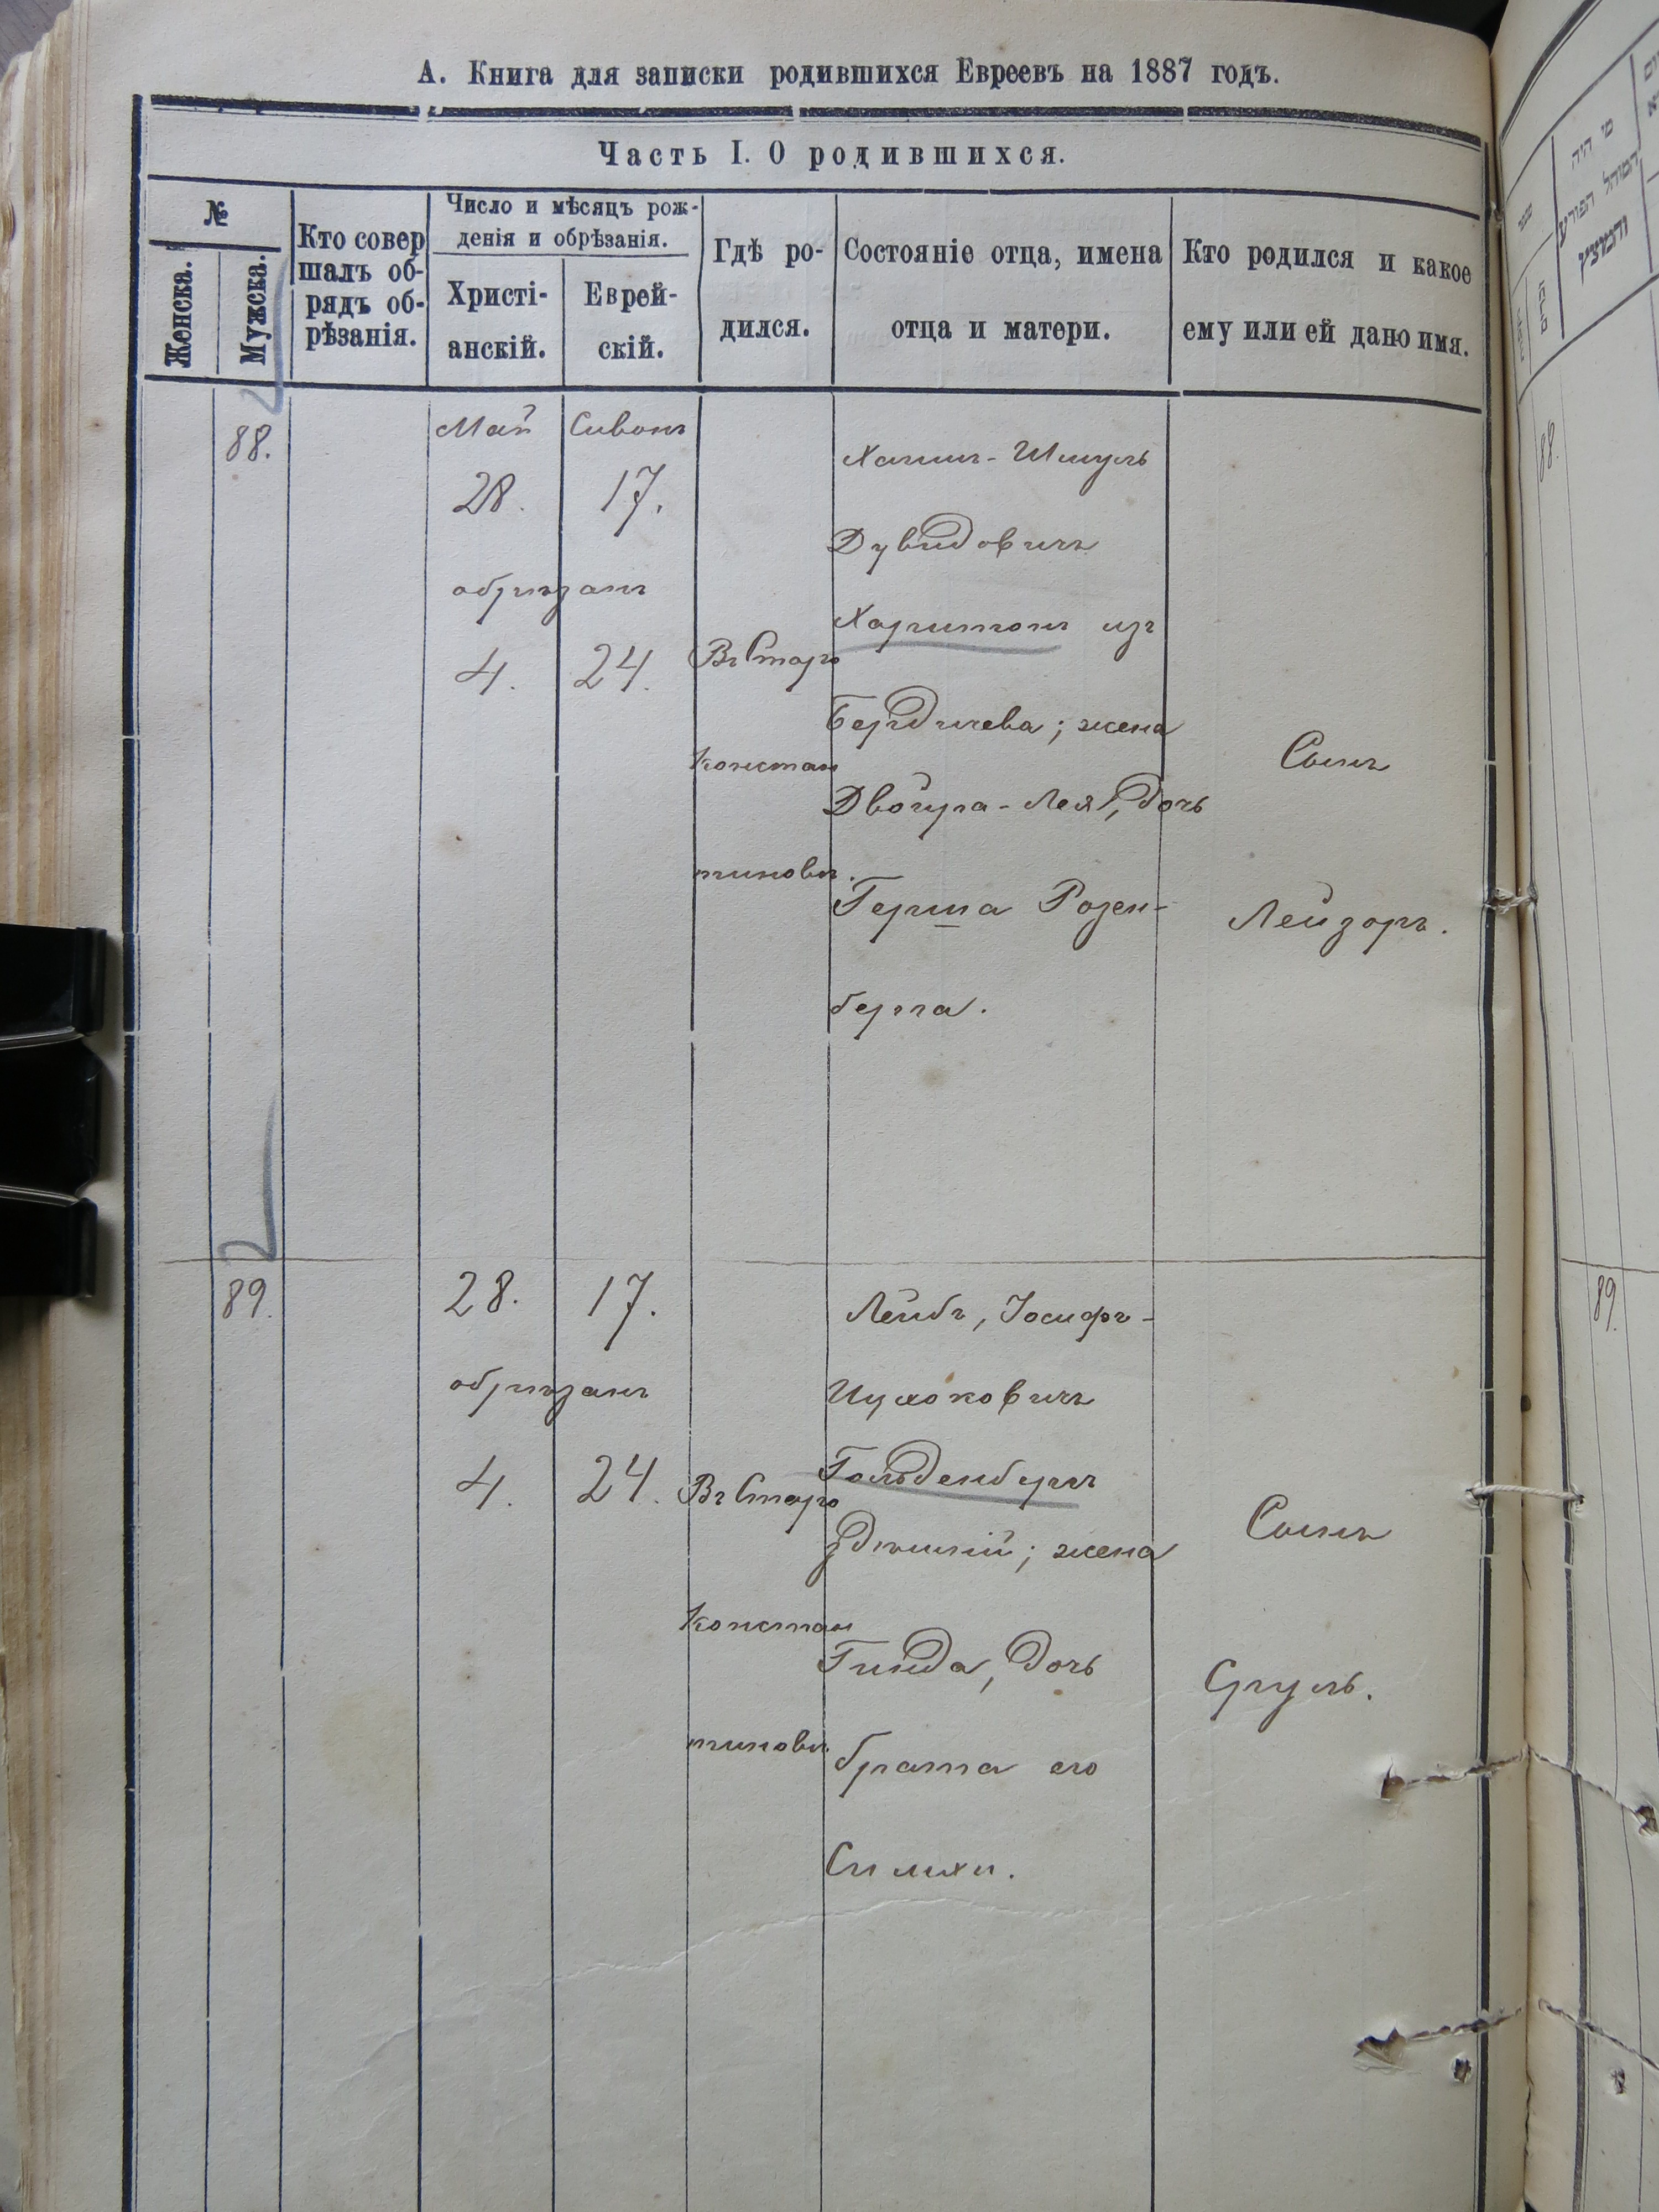 А. Книга для записки родившихся Евреевъ на 1887 годъ.
Часть I. О родившихся.
№
Женска.
Мужска.
Кто совер
шалъ об-
рядъ об-
рѣзанія.
Число и мѣсяцъ рож-
денія и обрѣзанія.
Христі-
анскій.
Еврей-
скій.
Гдѣ ро-
дился.
Состояніе отца, имена
отца и матери.
Кто родился и какое
ему или ей дано имя.
88.
Май
28.
обрѣзанъ
4.
Сивонъ
17.
24.
Въ Старо
констан
тиновѣ.
Хаимъ-Шмуль
Дувидовичъ
Харитонъ изъ
Бердичева; жена
Двойра-Лея, дочь
Герша Розен-
берга.
Сынъ
Лейзоръ.
89.
28.
обрѣзанъ
4.
17.
24.
Въ Старо
констан
тиновѣ.
Лейбъ, Іосифъ-
Ицхоковичъ
Гольденбургъ
здѣшній; жена
Гинда, дочь
брата его
Симхи.
Сынъ
Сруль.
מי היה
המוהל הפורע
והמוצץ
88.
89.